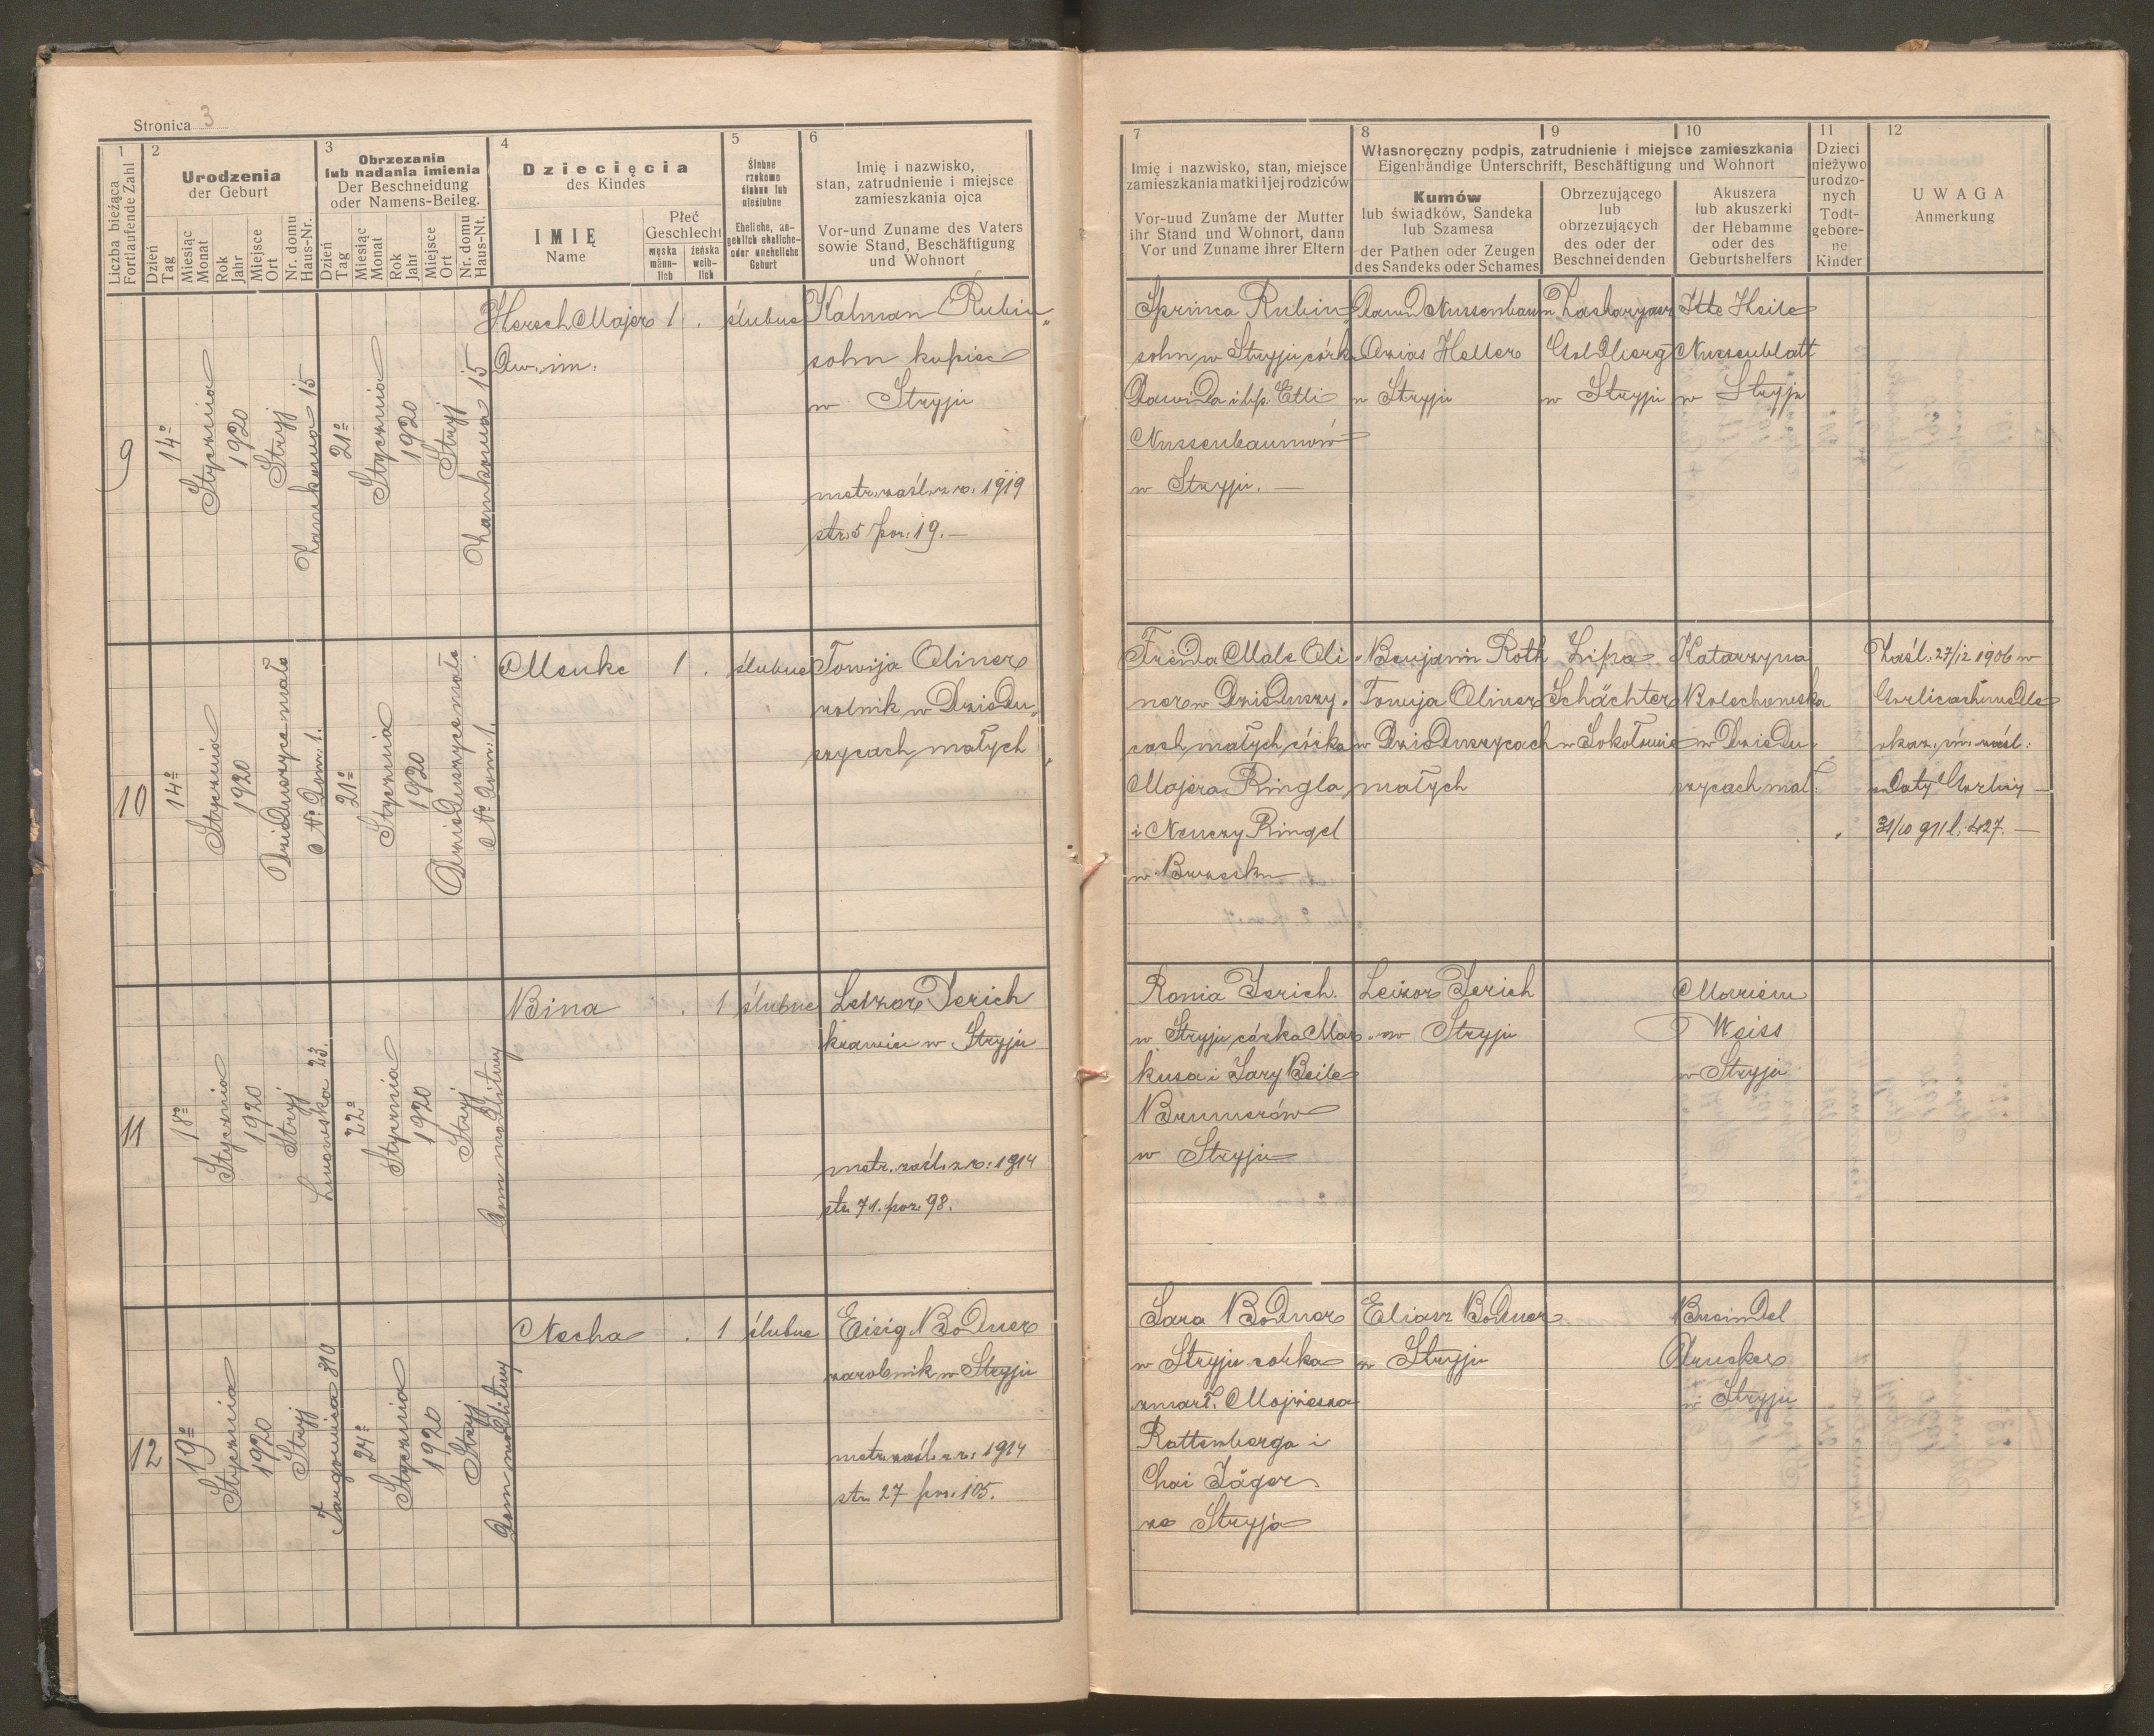 Stronica 3
1
Liczba bieżąca
Fortlaufende Zahl
2
Urodzenia
der Geburt
Dzień
Tag
Miesiąc
Monat
Rok
Jahr
Miejsce
Ort
Nr. domu
Haus-Nr.
3
Obrzezania
lub nadania imienia
Der Beschneidung
oder Namens-Beileg.
Dzień
Tag
Miesiąc
Monat
Rok
Jahr
Miejsce
Ort
Nr. domu
Haus-Nt.
4
Dziecięcia
des Kindes
IMIĘ
Name
Płeć
Geschlecht
męska
männ-
lich
żeńska
weib-
lich
5
Ślubne
rzekomo
ślubne lub
nieślubne
Eheliche, an-
geblich eheliche-
oder uneheliche
Geburt
6
Imię i nazwisko,
stan, zatrudnienie i miejsce
zamieszkania ojca
Vor-und Zuname des Vaters
sowie Stand, Beschäftigung
und Wohnort
7
Imię i nazwisko, stan, miejsce
zamieszkania matki i jej rodziców
Vor-uud Zuname der Mutter
ihr Stand und Wohnort, dann
Vor und Zuname ihrer Eltern
8
9
10
Własnoręczny podpis, zatrudnienie i miejsce zamieszkania
Eigenhändige Unterschrift, Beschäftigung und Wohnort
Kumów
lub świadków, Sandeka
lub Szamesa
der Pathen oder Zeugen
des Sandeks oder Schames
Obrzezującego
lub
obrzezujących
des oder der
Beschneidenden
Akuszera
lub akuszerki
der Hebamme
oder des
Geburtshelfers
11
Dzieci
nieżywo
urodzo-
nych
Todt-
gebore-
ne
Kinder
12
UWAGA
Anmerkung
9
14º
Stycznia
1920
Stryj
Zamkowa 15
21º
Stycznia
1920
Stryj
Zamkowa 15
Hersch Majer
Dw. im.
1 .
ślubne
Kalman Rubin„
sohn kupiec
w Stryju
metr. zaśl. z r. 1919
str. 5 poz. 19. —
Sprinca Rubin„
sohn w Stryju córka
Dawida i bp. Etti
Nussenbaumów
w Stryju. —
Dawid Nussenbaum
Ozias Heller
w Stryju
Zacharyasz
Goldberg
w Stryju
Itte Heile
Nussenblatt
w Stryju
10
14º
Stycznia
1920
Dzieduszyce małe
Nº dom. 1.
21º
Stycznia
1920
Dzieduszyce małe
Nº dom. 1.
Menke
1 .
ślubne
Towija Oliner
rolnik w Dziedu„
szycach małych
Freida Male Oli„
ner w Dzieduszy„
cach małych córka
Majera Ringla
i Neuczy Ringel
w Brzesku
Benjamin Roth
Towija Oliner
w Dzieduszycach
małych
Lipa
Schächter
w Sokołowie
Katarzyna
Bolechowska
w Dziedu„
szycach mał.
Zaśl. 27/12 1906 w
Gorlicach wedle
okaz. św. zaśl.
z daty Gorlicy
31/10 911 l. 427. —
11
18º
Stycznia
1920
Stryj
Lwowska 23.
22º
Stycznia
1920
Stryj
dom modlitwy
Bina
. 1
ślubne
Leizor Jerich
krawiec w Stryju
metr. zaśl. z r. 1914
str. 71. poz. 98.
Ronia Jerich
w Stryju córka Mar„
kusa i Sary Beile
Brumerów
w Stryju
Leizor Jerich
w Stryju
Mariem
Weiss
w Stryju
12
19º
Stycznia
1920
Stryj
Targowica 310
24º
Stycznia
1920
Stryj
dom modlitwy
Necha
. 1
ślubne
Eisig Bodner
zarobnik w Stryju
metr. zaśl. z r. 1914
str. 27 poz. 105.
Sara Bodner
w Stryju córka
zmarł. Mojżesza
Rottenberga i
Chai Jäger
ze Stryja
Eliasz Bodner
w Stryju
Breindel
Drucker
w Stryju